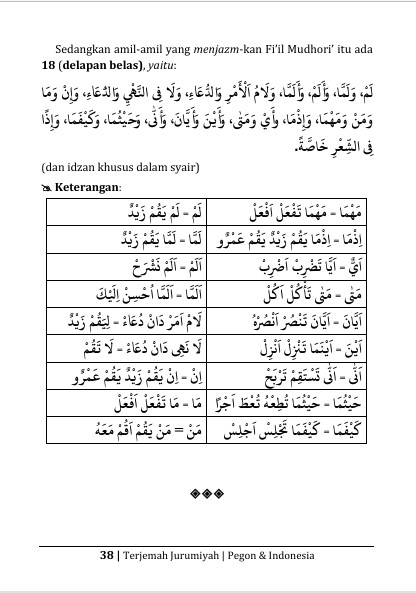 Sedangkan amil-amil yang menjazm-kan Fi'il Mudhori' itu ada
18 (delapan belas), yaitu:
لَمْ، وَلَمَّا، وَأَلَمْ، وَأَلَمَّا، وَلَامُ اْلأَمْرِ وَالدُّعَاءِ، وَلَا فِى النَّهْيِ وَالدُّعَاءِ، وَإِنْ وَمَا
وَمَنْ وَمَهْمَا، وَإِذْمَا، وَأَيٌّ وَمَتَى، وَأَيْنَ وَأَيَّانَ، وَأَنَّى، وَحَيْثُمَا، وَكَيْفَمَا، وَإِذًا
فِى الشِّعْرِ خَاصَّةً.
(dan idzan khusus dalam syair)
Keterangan:
مَهْمَا - مَهْمَا تَفْعَلْ اَفْعَلْ لَمْ - لَمْ يَقُمْ زَيْدٌ
اِذْمَا - اِذْمَا يَقُمْ زَيْدٌ يَقُمْ عَمْرٌو لَمَّا - لَمَّا يَقُمْ زَيْدٌ
اَيٌّ - اَيًّا تَضْرِبْ اَضْرِبْ اَلَمْ - اَلَمْ نَشْرَحْ
مَتَى - مَتَى تَأْكُلْ اَكُلْ اَلَمَّا - اَلَمَّا اُحْسِنْ اِلَيْكَ
اَيَّانَ - اَيَّانَ تَنْصُرْ اَنْصُرْهُ لَامْ اَمَرْ دَانْ دُعَاءْ - لِيَقُمْ زَيْدٌ
اَيْنَ - اَيْنَمَا تَنْزِلْ اَنْزِلْ لَا نَهِى دَانْ دُعَاءْ - لَا تَقُمْ
اَنَّى - اَنَّى تَسْتَقِمْ تَرْبَحْ اِنْ - اِنْ يَقُمْ زَيْدٌ يَقُمْ عَمْرٌو
حَيْثُمَا - حَيْثُمَا تُطِعْهُ تُعْطَ اَجْرًا مَا - مَا تَفْعَلْ اَفْعَلْ
كَيْفَمَا - كَيْفَمَا تَجْلِسْ اَجْلِسْ مَنْ = مَنْ يَقُمْ اَقُمْ مَعَهُ
38 | Terjemah Jurumiyah | Pegon & Indonesia